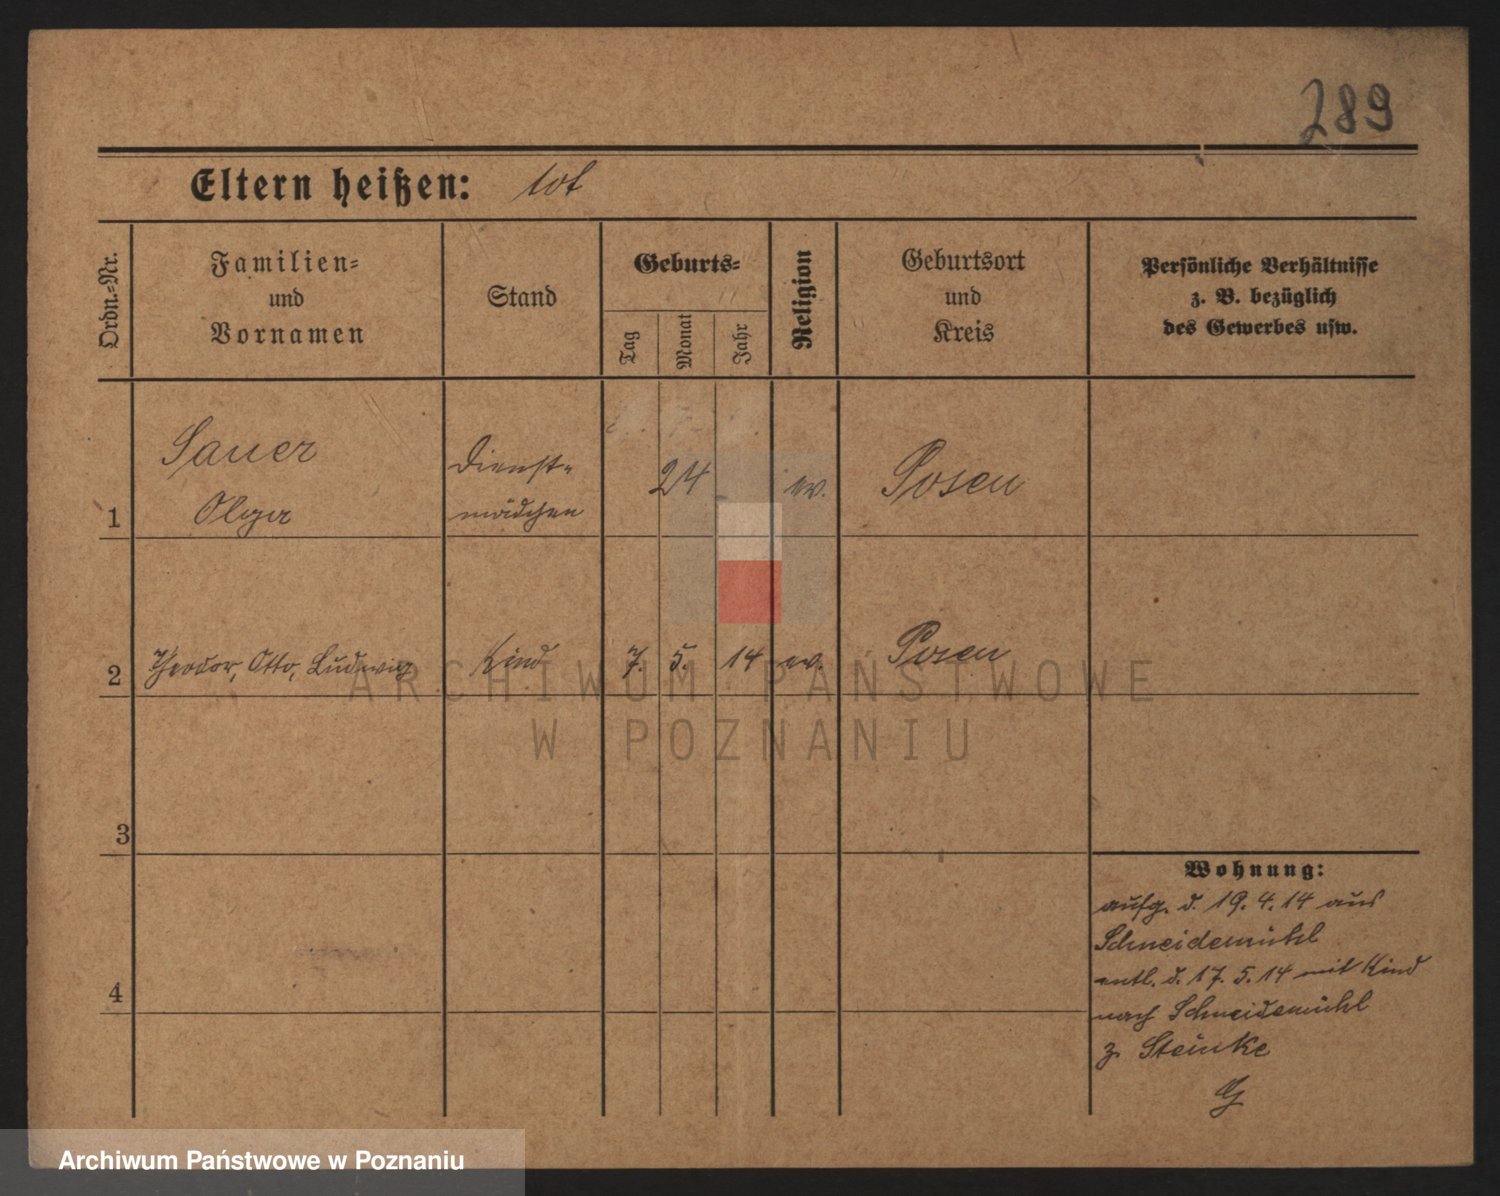 289
Eltern heißen: tot
Ordn.-Nr.
Familien-
und
Vornamen
Stand
Geburts-
Tag
Monat
Jahr
Religion
Geburtsort
und
Kreis
Persönliche Verhältnisse
z. B. bezüglich
des Gewerbes usw.
1
Sauer
Olga
Dienst-
mädchen
24
ev.
Posen
2
Theodor, Otto, Ludwig
Kind
7.
5.
14
ev.
Posen
ARCHIWUM PAŃSTWOWE
W POZNANIU
3
4
Wohnung:
aufg. d. 19. 4. 14 aus
Schneidemühl
entl. d. 17. 5. 14 mit Kind
nach Schneidemühl
z. Steinke
Archiwum Państwowe w Poznaniu